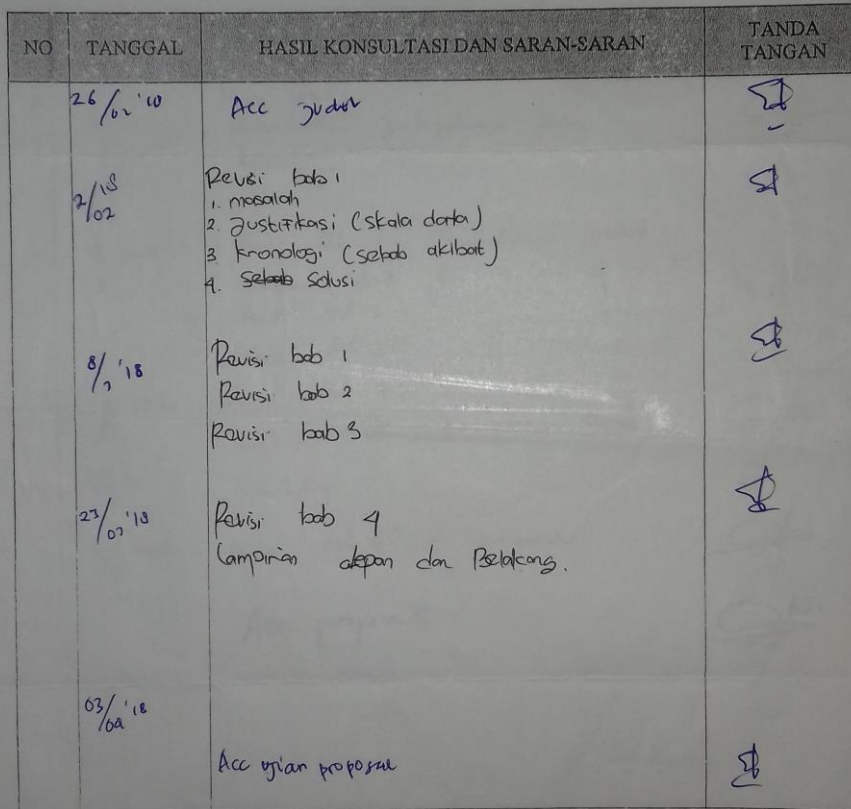 NO TANGGAL HASIL KONSULTASI DAN SARAN-SARAN TANDA TANGAN
26/02 '18 Acc judul
2/02 '18 Revisi bab 1
1. masalah
2. Justifikasi (skala data)
3 kronologi (sebab akibat)
4. sebab solusi
8/3 '18 Revisi bab 1
Revisi bab 2
Revisi bab 3
23/03 '18 Revisi bab 4
Lampiran depan dan Belakang.
03/04 '18
Acc ujian proposal